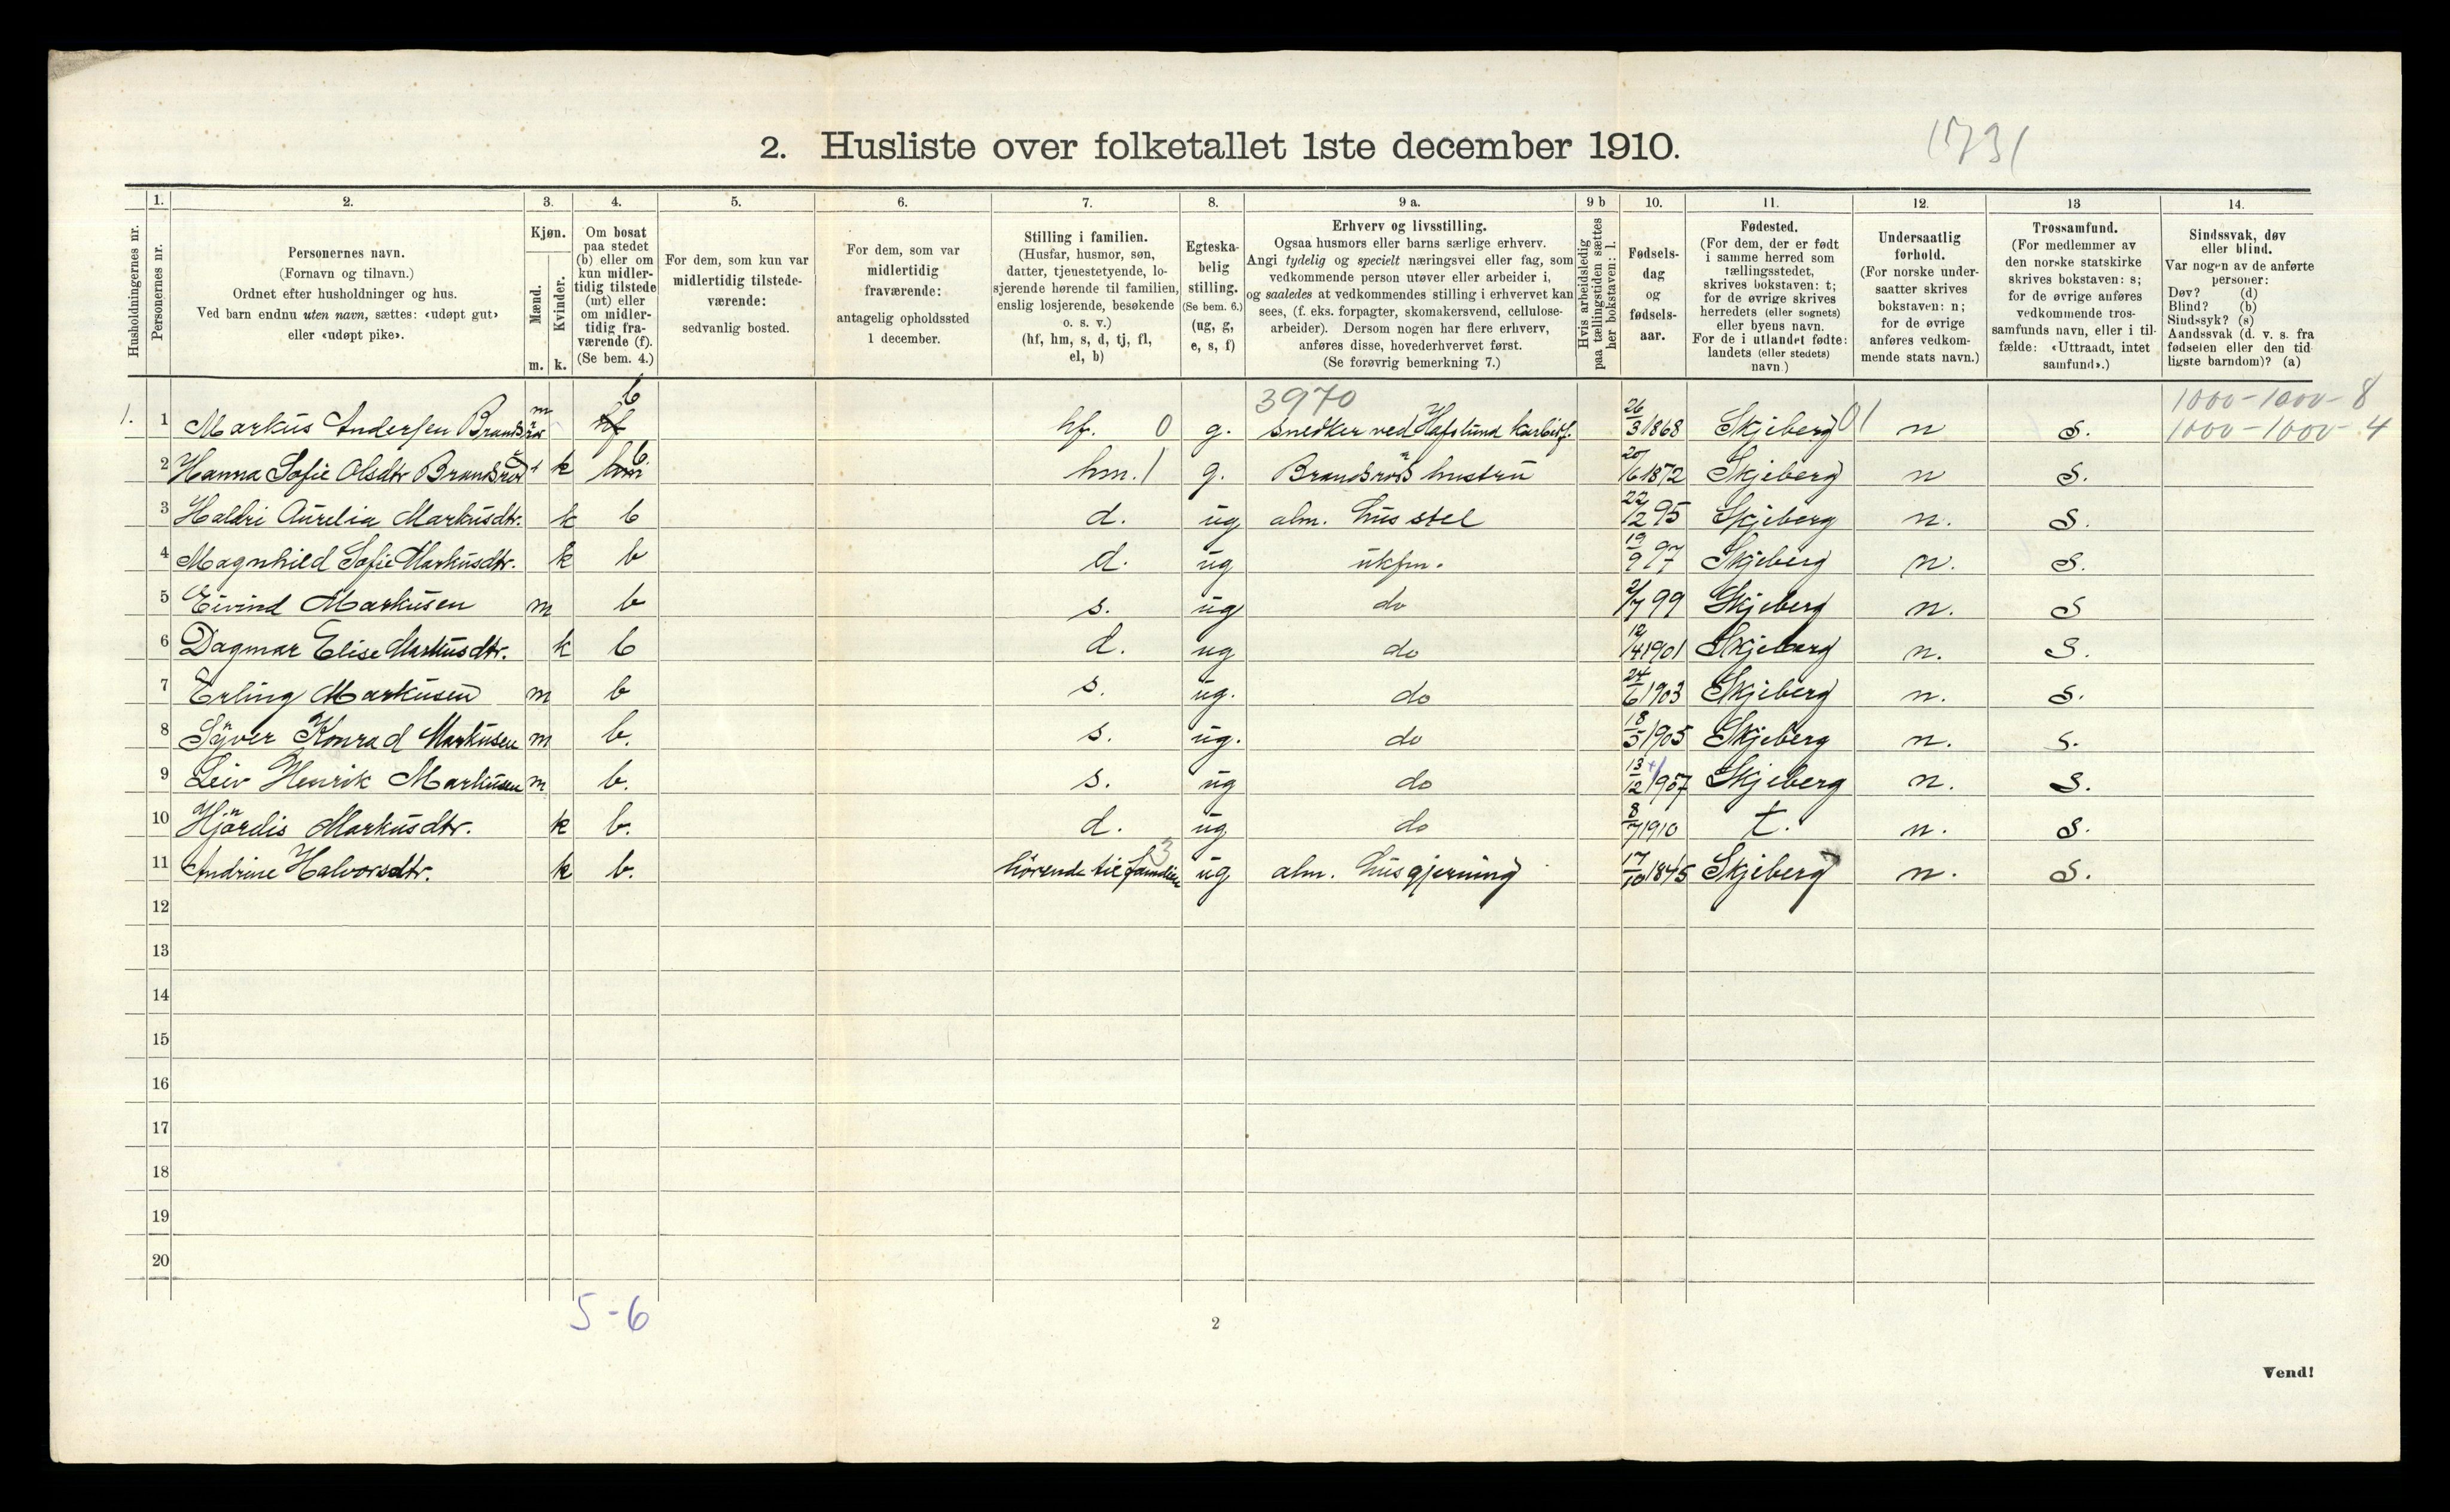 1731
2. Husliste over folketallet 1ste december 1910.
Husholdningernes nr.
1. Personernes nr.
2. Personernes navn.
(Fornavn og tilnavn.)
Ordnet efter husholdninger og hus.
Ved barn endnu uten navn, sættes: «udøpt gut»
eller «udøpt pike».
3. Kjøn.
Mænd. m.
Kvinder. k.
4. Om bosat
paa stedet
(b) eller om
kun midler-
tidig tilstede
(mt) eller
om midler-
tidig fra-
værende (f).
(Se bem. 4.)
5. For dem, som kun var
midlertidig tilstede-
værende:
sedvanlig bosted.
6. For dem, som var
midlertidig
fraværende:
antagelig opholdssted
1 december.
7. Stilling i familien.
(Husfar, husmor, søn,
datter, tjenestetyende, lo-
sjerende hørende til familien,
enslig losjerende, besøkende
o. s. v.)
(hf, hm, s, d, tj, fl,
el, b)
8. Egteska-
belig
stilling.
(Se bem. 6.)
(ug, g,
e, s, f)
9 a. Erhverv og livsstilling.
Ogsaa husmors eller barns særlige erhverv.
Angi tydelig og specielt næringsvei eller fag, som
vedkommende person utøver eller arbeider i,
og saaledes at vedkommendes stilling i erhvervet kan
sees, (f. eks. forpagter, skomakersvend, cellulose-
arbeider). Dersom nogen har flere erhverv,
anføres disse, hovederhvervet først.
(Se forøvrig bemerkning 7.)
9 b Hvis arbeidsledig
paa tællingstiden sættes
her bokstaven: l.
10. Fødsels-
dag
og
fødsels-
aar.
11. Fødested.
(For dem, der er født
i samme herred som
tællingsstedet,
skrives bokstaven: t;
for de øvrige skrives
herredets (eller sognets)
eller byens navn.
For de i utlandet fødte:
landets (eller stedets)
navn.)
12. Undersaatlig
forhold.
(For norske under-
saatter skrives
bokstaven: n;
for de øvrige
anføres vedkom-
mende stats navn.)
13 Trossamfund.
(For medlemmer av
den norske statskirke
skrives bokstaven: s;
for de øvrige anføres
vedkommende tros-
samfunds navn, eller i til-
fælde: «Uttraadt, intet
samfund».)
14. Sindssvak, døv
eller blind.
Var nogen av de anførte
personer:
Døv? (d)
Blind? (b)
Sindssyk? (s)
Aandssvak (d. v. s. fra
fødselen eller den tid
ligste barndom)? (a)
3970 1000-1000-8
1. 1 Markus Andersen Brandsrød m b hf. 0 g. snedker ved Hafslund Karbidf. 26/3 1868 Skjeberg 01 n s. 1000-1000-4
2 Hanna Sofie Olsdtr Brandsrød k b hm. 1 g. Brandsrøds hustru 20/6 1872 Skjeberg n s.
3 Haldri Aurelia Markusdtr. k b d. ug alm. husstel 22/12 95 Skjeberg n. s.
4 Magnhild Sofie Markusdtr. k b d. ug ukfm. 19/9 97 Skjeberg n. s.
5 Eivind Markusen m b s. ug do 2/7 99 Skjeberg n. s
6 Dagmar Elise Markusdtr. k b d. ug do 12/4 1901 Skjeberg n. s.
7 Erling Markusen m b s. ug. do 24/6 1903 Skjeberg n. s.
8 Syver Konrad Markusen m b. s. ug. do 18/5 1905 Skjeberg n. s.
9 Leiv Henrik Markusen m b. s. ug do 13/12 1907 Skjeberg n. s.
10 Hjördis Markusdtr. k b. d. ug do 8/7 1910 t. n. s.
11 Andrine Halvorsdtr. k b. hörende til familien 3 ug alm. husgjerning 17/10 1845 Skjeberg n. s.
12
13
14
15
16
17
18
19
20
5-6
2
Vend!